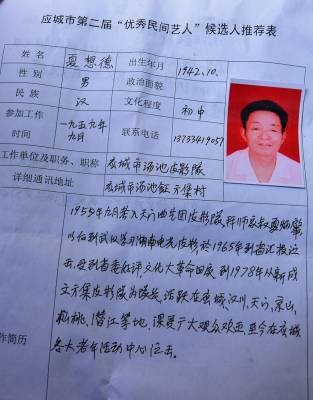 应城市第二届“优秀民间艺人”候选人推荐表
姓名 夏想德 出生年月 1942.10.
性别 男 政治面貌
民族 汉 文化程度 初中
参加工作时间 一九五九年九月 联系电话 13733419057
工作单位及职务、职称 应城市汤池皮影队
详细通讯地址 应城市汤池镇方集村
1959年九月考入天门曲艺团皮影队,拜师
以后到武汉学习湖南电光皮影於1965年到省汇报演
出,受到省委好评,文化大革命回家到1978年从新成
立方集皮影队为队长,活跃在应城、汉川、天门、京山、
松桃、潜江等地,深受广大观众欢迎,至今在应城
各大老年活动中心演出。
作简历